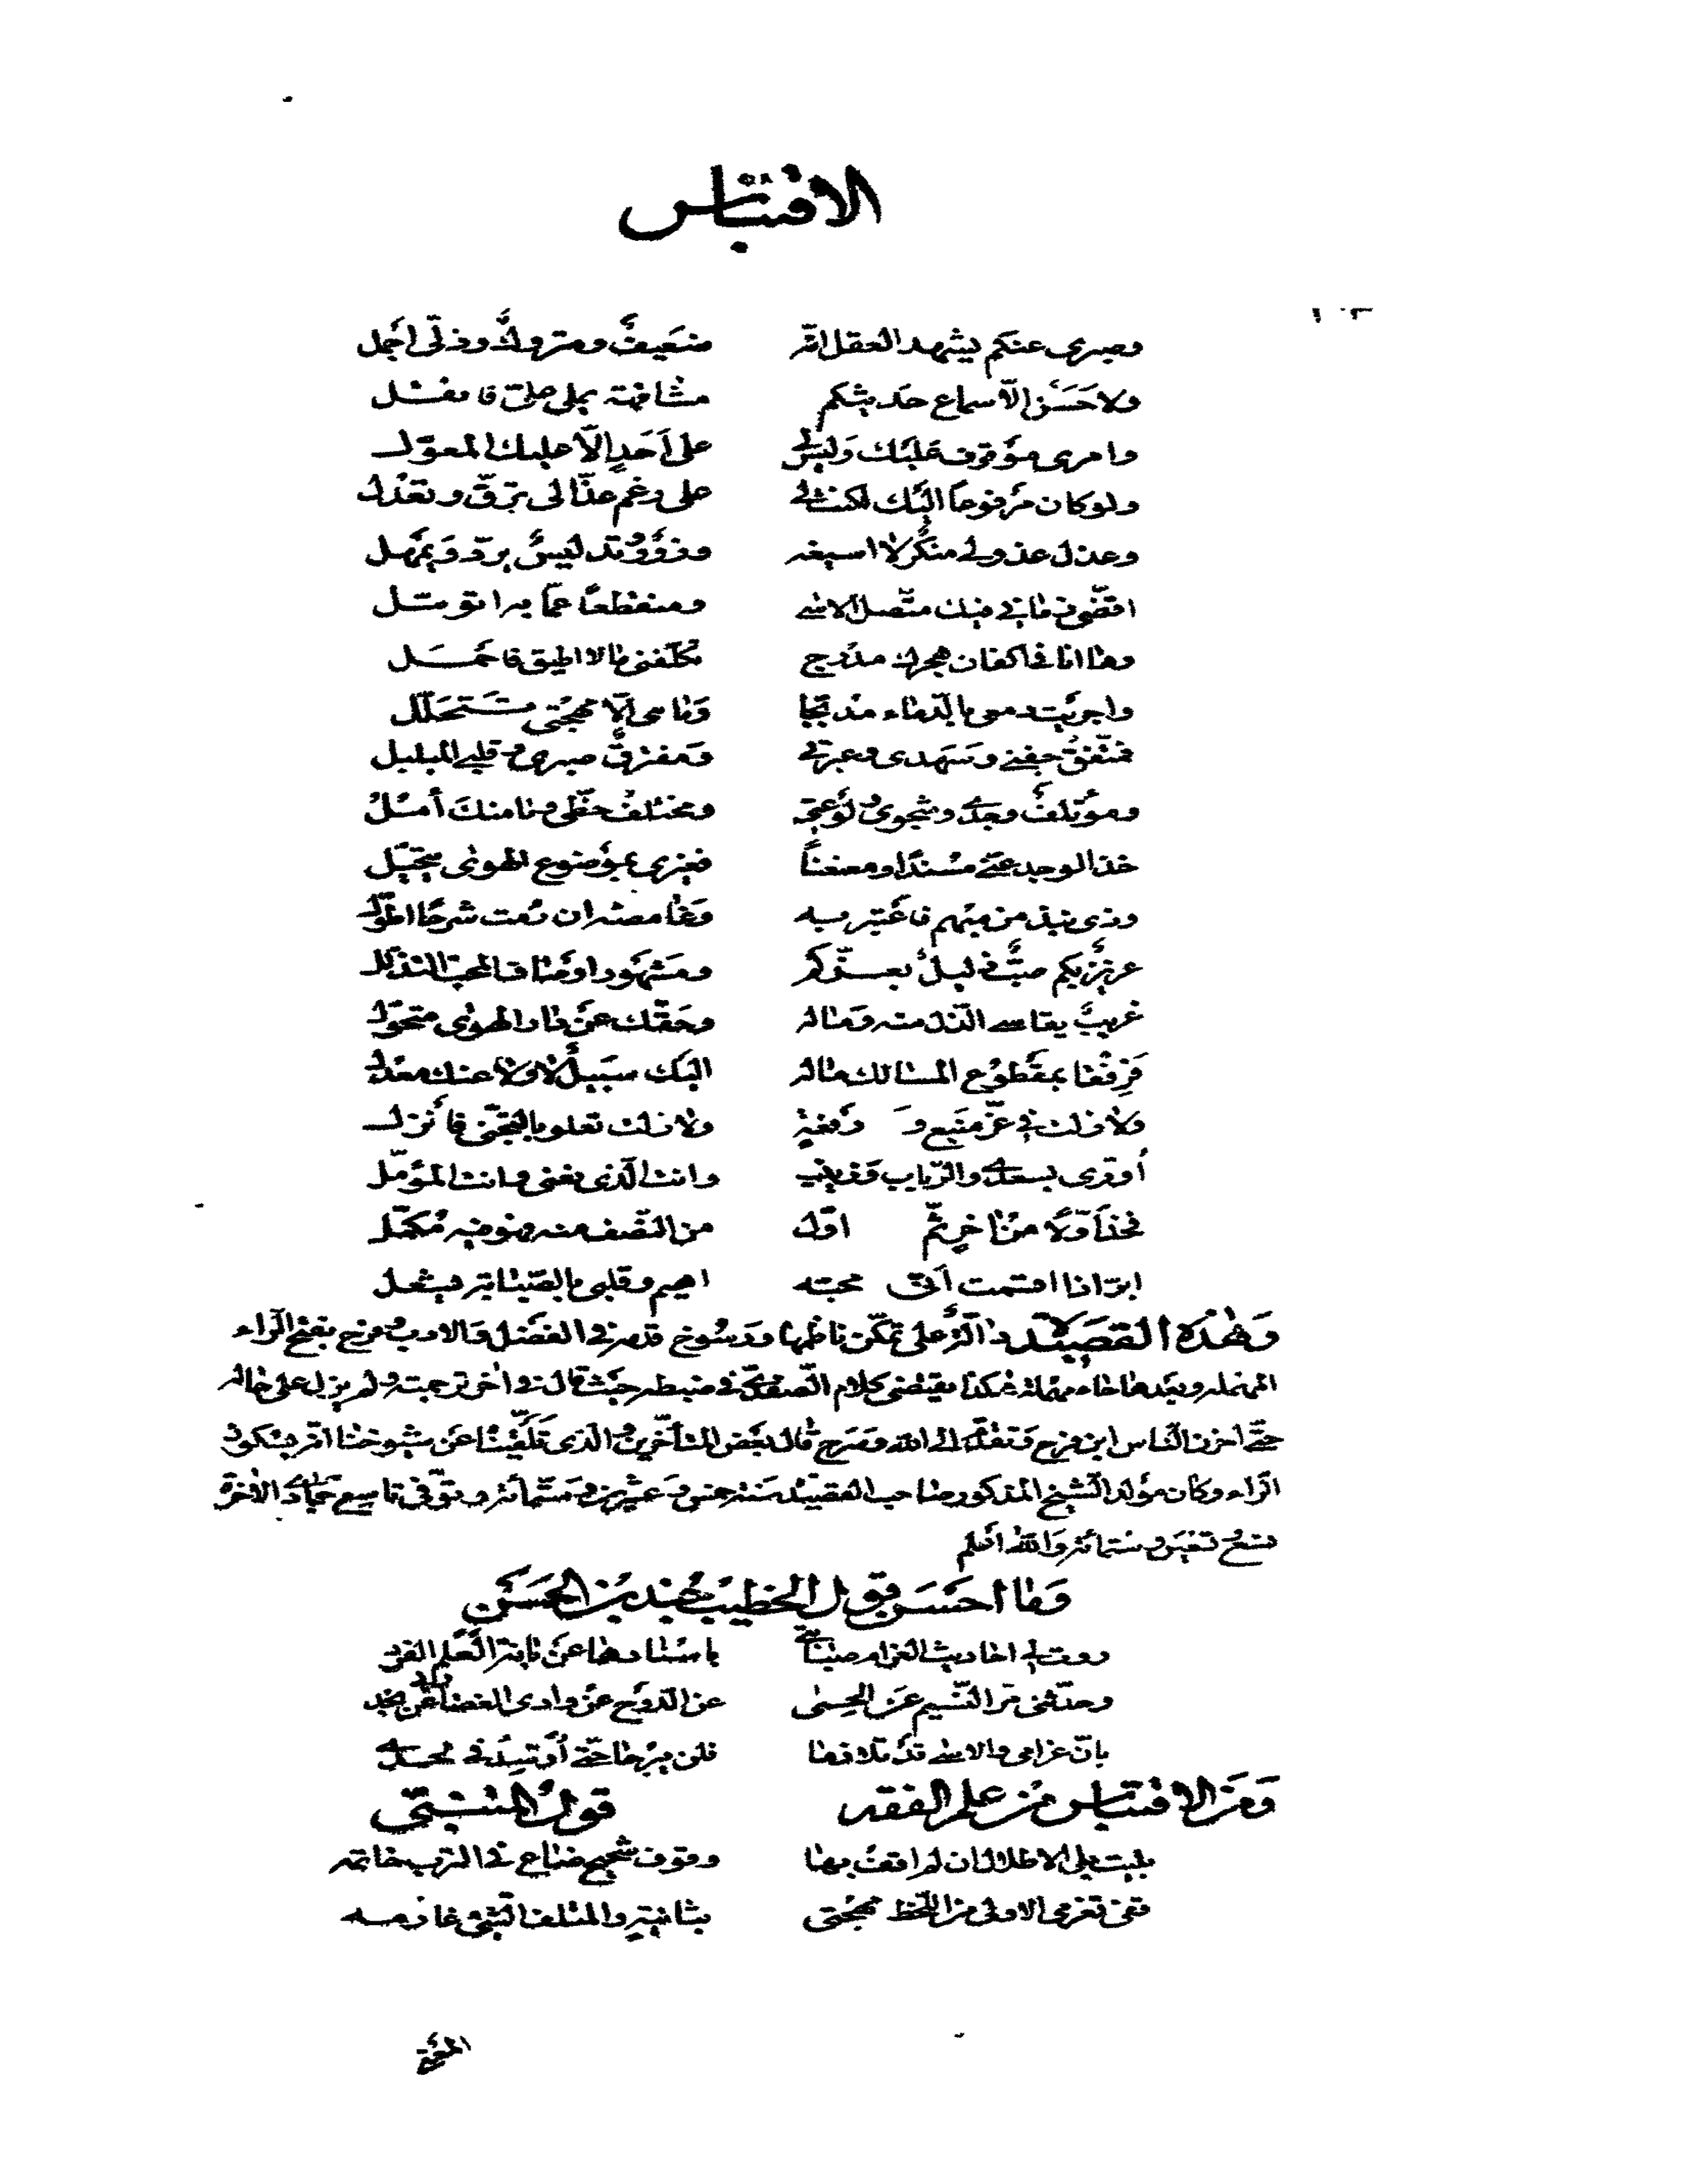 الاقتباس
١٠٣
وصبري عنكم يشهد العقل انّه ضَعيفٌ ومتروكٌ وذلّى اجمل
ولا حَسَن الّا سماع حديثكم مشافهة يملى علىّ فانقل
وامرى موقوف عَليْك وَليْس لى على اَحَدٍ الّا عليك المعوّل
ولو كان مرفوعاً اليْك لكنت لى على رغم عذّالى ترقّ وتعْدل
وعذل عذولى منكرٌ لا اسيغه وزورٌ وتدليسٌ يردّ ويهمل
اقضّى زمانى فيك متّصل الاسى ومنقطعاً عمّا به اتوصّل
وها انا فى اكفان هجرك مدرج تكلّفنى مالا اطيق فاحمل
واجريْت دمعى بالدّماء مدبّجا وَما هى الّا مهجَتى تتحلّل
فمتّفقٌ جفنى وسَهدى وعبرتى وَمفترقٌ صبرى وقلبى المبلبل
ومؤتلفٌ وجدى وشجوى ولوْعتى ومختلفٌ حظّى وما منك آمُلُ
خذ الوجد عنّى مسْنداً ومعنعناً فغيرى بموضوع الهوى يتحيّل
وذى نبذ من مبْهم فاعْتبر به وَغامضه ان رُمت شرحًا اطوّل
عزيزٌ بكم صبٌّ ذليلٌ بعزّكم ومشهور اوصاف المحبّ التذلّل
غريبٌ يقاسى البُعد منه وَماله وحَقّك عنْ دار الهوى متحوّل
فَرِفْقا بمقْطوع المسَالك ماله اليْك سبيلٌ لا ولا عنك معْدل
ولا زلت فى عزّ منيع ورفعة ولا زلت تعلو بالتجنّى فأنزل
أورّى بسعدى والرّباب وَزينب وانت الّذى تعنى وانت المؤمّل
فخذ أوّلاً من آخرٍ ثمّ اوّلا من النّصف منه فهْو فيه مُكمّل
ابرّ اذا اقسمت انّى بحبّه اهيم وقلبى بالصّبابة يشعل
وَهٰذه القصيْدة دالّة على تمكّن ناظمها ورسُوخ قدمه فى الفضل والادب وفرح بفتح الرّاء
المهملة وبعْدها حاء مهملة هكذا يقتضى كلام الصّفدىّ فى ضبطه حيث قال فى آخر ترجمته ولم يزل على حاله
حتّى احزن النّاس ابن فرح وَتقدّم الى اللّه وَسَرح قال بعْض المتأخّرين والّذى تلقّيْناه عَن شيوخنا انّه بسكون
الرّاء وكان موْلد الشّيخ المذكور صاحب القصيْدة سَنة خمس وعشْرين وستّمائة وتوفّى تاسع جمادى الآخرة
سنة تسع وتسعين وستمائة وَاللّه أعْلم
وَما احسَن قول الخطيب حميْد بْن الحسَن
روت لى احاديث الغرام صبابتى باسْنادها عنْ بانة العَلم الفرد
وحدّثنى مرّ النّسيم عَن الحِمى عن الدّوح عنْ وادى الغضا عنْ ربا نجد
بانّ غرامى والاسى قدْ تلازما فلن يبرحا حتّى أوسّد فى لحدى
وَمنَ الاقتباس مِنْ علم الفقه قولُ المتنبّى
بليت بلى الاطلال ان لم اقف بها وقوف شحيح ضاع فى الترب خاتمه
قفى تغرمى الاولى من اللّحظ مهجتى بثانية والمتلف الشّئ غارمه